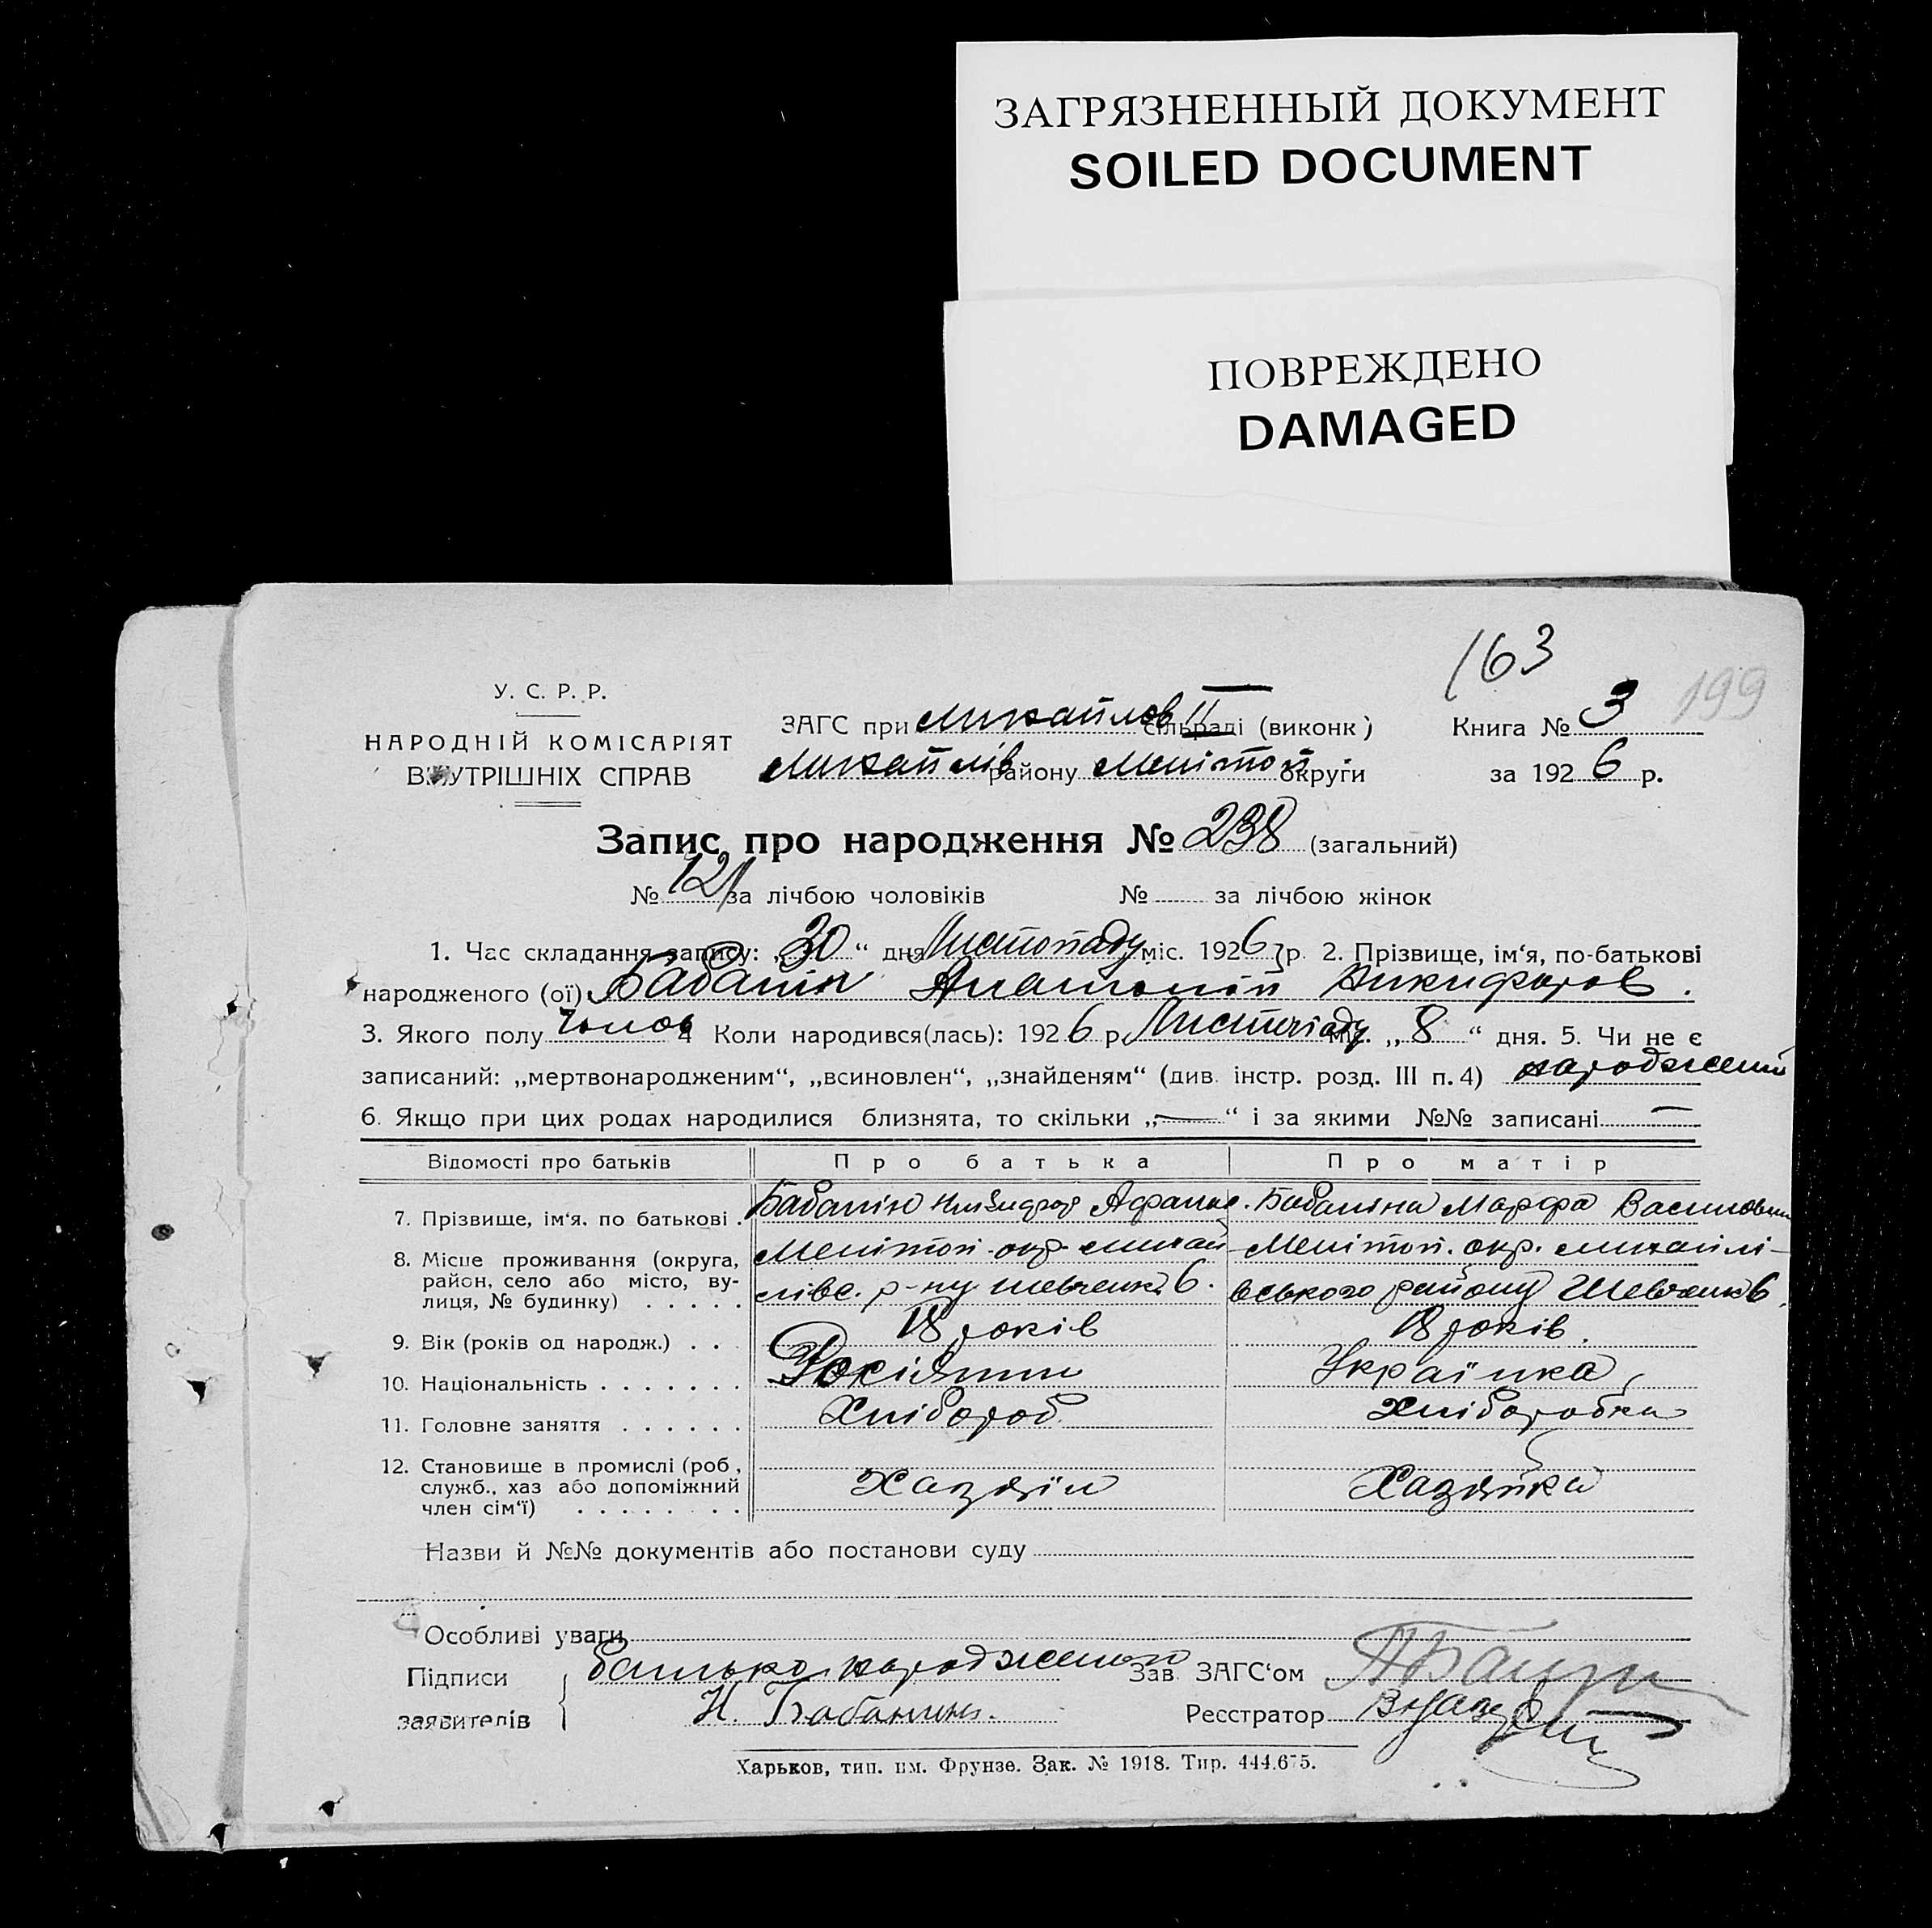 ЗАГРЯЗНЕННЫЙ ДОКУМЕНТ
SOILED DOCUMENT
ПОВРЕЖДЕНО
DAMAGED
163
199
У. С. Р. Р.
НАРОДНІЙ КОМІСАРІЯТ
ВНУТРІШНІХ СПРАВ
ЗАГС при Михайлов II сільраді (виконк)
Михайлів району Меліто́п округи
Книга № 3
за 1926 р.
Запис про народження № 238 (загальний)
№ 121 за лічбою чоловіків № за лічбою жінок
1. Час складання запису: „30“ дня Листопаду міс. 1926 р. 2. Прізвище, ім‘я, по-батькові
народженого (ої) Бабанін Анатолій Никифоров.
3. Якого полу Чолов 4 Коли народився(лась): 1926 р. Листопаду міс. „8“ дня. 5. Чи не є
записаний: „мертвонародженим“, „всиновлен“, „знайденям“ (див. інстр. розд. III п. 4) народжений
6. Якщо при цих родах народилися близнята, то скільки „—“ і за якими №№ записані —
Відомості про батьків Про батька Про матір
7. Прізвище, ім‘я, по батькові . Бабанін Никифор Афанас. Бабаніна Марфа Василовна
8. Місце проживання (округа, район, село або місто, вулиця, № будинку) . . . . .
Меліто́п. окр. Михайлівс. р-ну Шевченка 6.
Меліто́п. окр. Михайлівського району Шевченк 6.
9. Вік (років од народж.) . . 18 років 18 років.
10. Національність . . . . . . . Росіянин Українка
11. Головне заняття . . . . . . Хлібороб Хліборобка
12. Становище в промислі (роб., служб., хаз або допоміжний член сім‘ї) . . . . . . . .
Хазяїн Хазяйка
Назви й №№ документів або постанови суду
Особливі уваги
Підписи заявителів
батько народженого
Н. Бабанин.
Зав. ЗАГС‘ом
Реєстратор
Харьков, тип. им. Фрунзе. Зак. № 1918. Тир. 444.675.